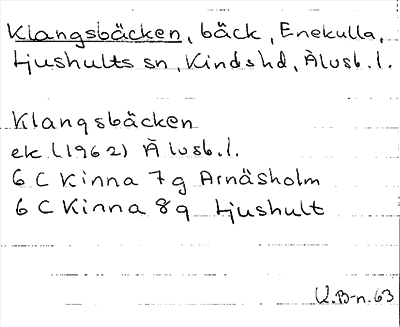 Klangsbäcken, bäck, Enekulla,
Ljushults sn, Kinds hd, Älvsb. l.
Klangsbäcken
ek (1962) Älvsb. l.
6 C Kinna 7g Arnäsholm
6 C Kinna 8g Ljushult
K.B-n. 63